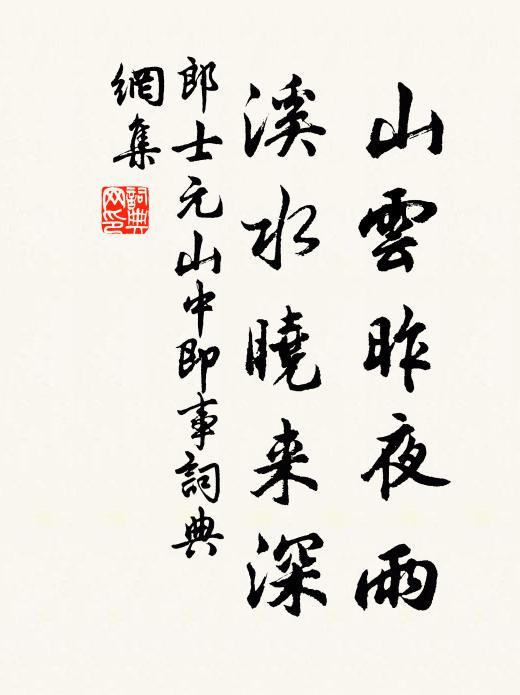 山雲昨夜雨
溪水曉来深
郎士元山中即事詞典
網集
詞典
网印